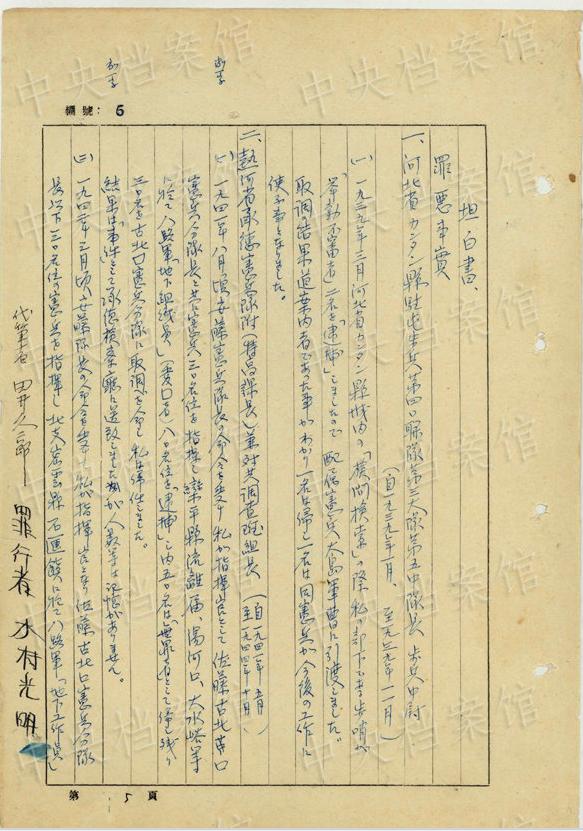 欄號: 5
坦白書、
罪惡事實
一、河北省カンタン縣駐屯歩兵第四〇聯隊第三大隊第五中隊長 歩兵中尉
(自一九三九年一月、至一九三九年一一月)
(一) 一九三九年三月河北省カンタン縣城内の「横問検索」の際、私の部下である歩哨が
「挙動不審者」二名を「逮捕」しましたので配属憲兵大島軍曹に引渡しました。
取調の結果道案内者であった事がわかり一名は帰し一名は同憲兵が今後の工作に
使ふ事となりました。
二、熱河省承徳憲兵隊附(特高課長)兼対共調査班組長 (自一九四一年五月 至一九四四年十月)
(一) 一九四一年八月頃安藤憲兵隊長の命令を受け私が指揮官として佐藤古北口
憲兵分隊長と共に憲兵三〇名位を指揮し灤平縣 湯河口、大水峪等
に於て八路軍地下組織員 八〇名位を「逮捕」し内五〇名は 帰し残り
三〇名を古北口憲兵分隊に取調を命じ
結果は事件として承徳検察廳に送致しました 人数等は記憶がありません。
(二) 一九四二年三月頃安藤隊長の命令を受け私が指揮官となり佐藤古北口憲兵分隊
長以下三〇名位の憲兵を指揮し北支密雲縣石匣鎮に於て八路軍「地下工作員」
代筆者 田井久二郎 罪行者 木村光明
第 5 頁
中央档案馆